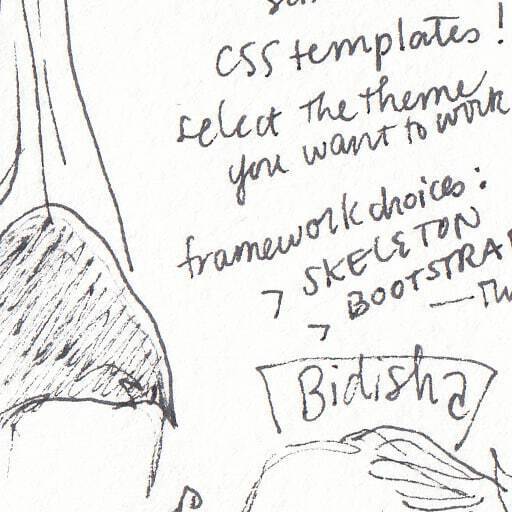 CSS templates!
select the theme
you want to work
framework choices:
> SKELETON
> BOOTSTRAP
Bidisha